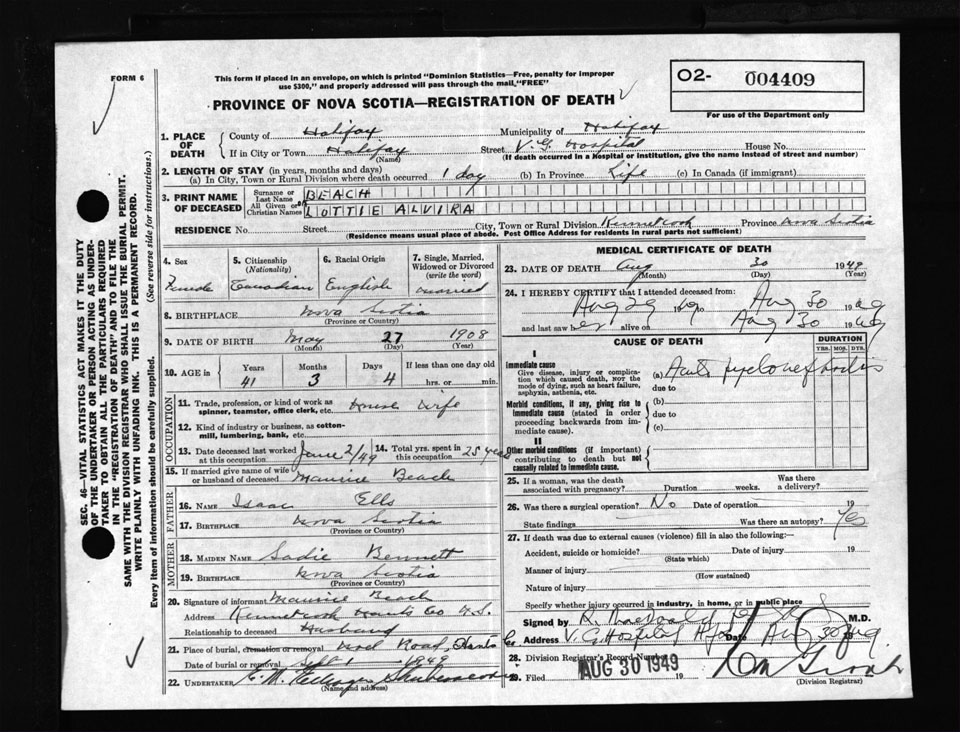 FORM 6
This form if placed in an envelope, on which is printed "Dominion Statistics—Free, penalty for improper
use $300," and properly addressed will pass through the mail, "FREE"
PROVINCE OF NOVA SCOTIA—REGISTRATION OF DEATH
O2- 004409
For use of the Department only
SEC. 46—VITAL STATISTICS ACT MAKES IT THE DUTY
OF THE UNDERTAKER OR PERSON ACTING AS UNDER-
TAKER TO OBTAIN ALL THE PARTICULARS REQUIRED
IN THE "REGISTRATION OF DEATH" AND TO FILE THE
SAME WITH THE DIVISION REGISTRAR WHO SHALL ISSUE THE BURIAL PERMIT.
WRITE PLAINLY WITH UNFADING INK. THIS IS A PERMANENT RECORD.
Every item of information should be carefully supplied. (See reverse side for instructions.)
1. PLACE OF DEATH
County of Halifax Municipality of Halifax
If in City or Town Halifax Street V. G. Hospital House No.
(Name) (If death occurred in a Hospital or institution, give the name instead of street and number)
2. LENGTH OF STAY (in years, months and days)
(a) In City, Town or Rural Division where death occurred 1 day (b) In Province Life (c) In Canada (if immigrant)
3. PRINT NAME OF DECEASED
Surname or Last Name BEACH
All Given or Christian Names LOTTIE ALVIRA
RESIDENCE No. Street City, Town or Rural Division Kennetcook Province Nova Scotia
(Residence means usual place of abode. Post Office Address for residents in rural parts not sufficient)
4. Sex
Female
5. Citizenship
(Nationality)
Canadian
6. Racial Origin
English
7. Single, Married,
Widowed or Divorced
(write the word)
Married
8. BIRTHPLACE Nova Scotia
(Province or Country)
9. DATE OF BIRTH May 27 1908
(Month) (Day) (Year)
10. AGE in
Years Months Days If less than one day old
41 3 4 hrs. or min.
OCCUPATION
11. Trade, profession, or kind of work as
spinner, teamster, office clerk, etc. House Wife
12. Kind of industry or business, as cotton-
mill, lumbering, bank, etc.
13. Date deceased last worked
at this occupation June 2/49
14. Total yrs. spent in
this occupation 25 years
15. If married give name of wife
or husband of deceased Maurice Beach
FATHER
16. Name Isaac Ells
17. Birthplace Nova Scotia
(Province or Country)
MOTHER
18. Maiden Name Sadie Bennett
19. Birthplace Nova Scotia
(Province or Country)
20. Signature of informant Maurice Beach
Address Kennetcook Hants Co N.S.
Relationship to deceased Husband
21. Place of burial, cremation or removal Noel Road, Hants Co.
Date of burial or removal Sept 1 1949
22. Undertaker E. M.
(Name and address)
MEDICAL CERTIFICATE OF DEATH
23. DATE OF DEATH Aug 30 1949
(Month) (Day) (Year)
24. I HEREBY CERTIFY that I attended deceased from:
Aug 29 19 49 Aug 30 1949
and last saw her alive on Aug 30 1949
CAUSE OF DEATH
DURATION
YRS. MOS. DYS.
I
Immediate cause
Give disease, injury or compli-
cation which caused death, NOT the
mode of dying, such as heart failure,
asphyxia, asthenia, etc.
(a) Acute pyelonephritis
due to
Morbid conditions, if any, giving rise to
immediate cause (stated in order
proceeding backwards from im-
mediate cause).
(b)
due to
(c)
II
Other morbid conditions (if important)
contributing to death but not
causally related to immediate cause.
25. If a woman, was the death
associated with pregnancy? Duration weeks. Was there
a delivery?
26. Was there a surgical operation? No Date of operation 19
State findings Was there an autopsy? Yes
27. If death was due to external causes (violence) fill in also the following:—
Accident, suicide or homicide? Date of injury 19
(State which)
Manner of injury
(How sustained)
Nature of injury
Specify whether injury occurred in industry, in home, or in public place
Signed by M.D.
Address V. G. Hospital Hfx Date Aug 30 1949
28. Division Registrar's Record Number
29. Filed AUG 30 1949 19
(Division Registrar)